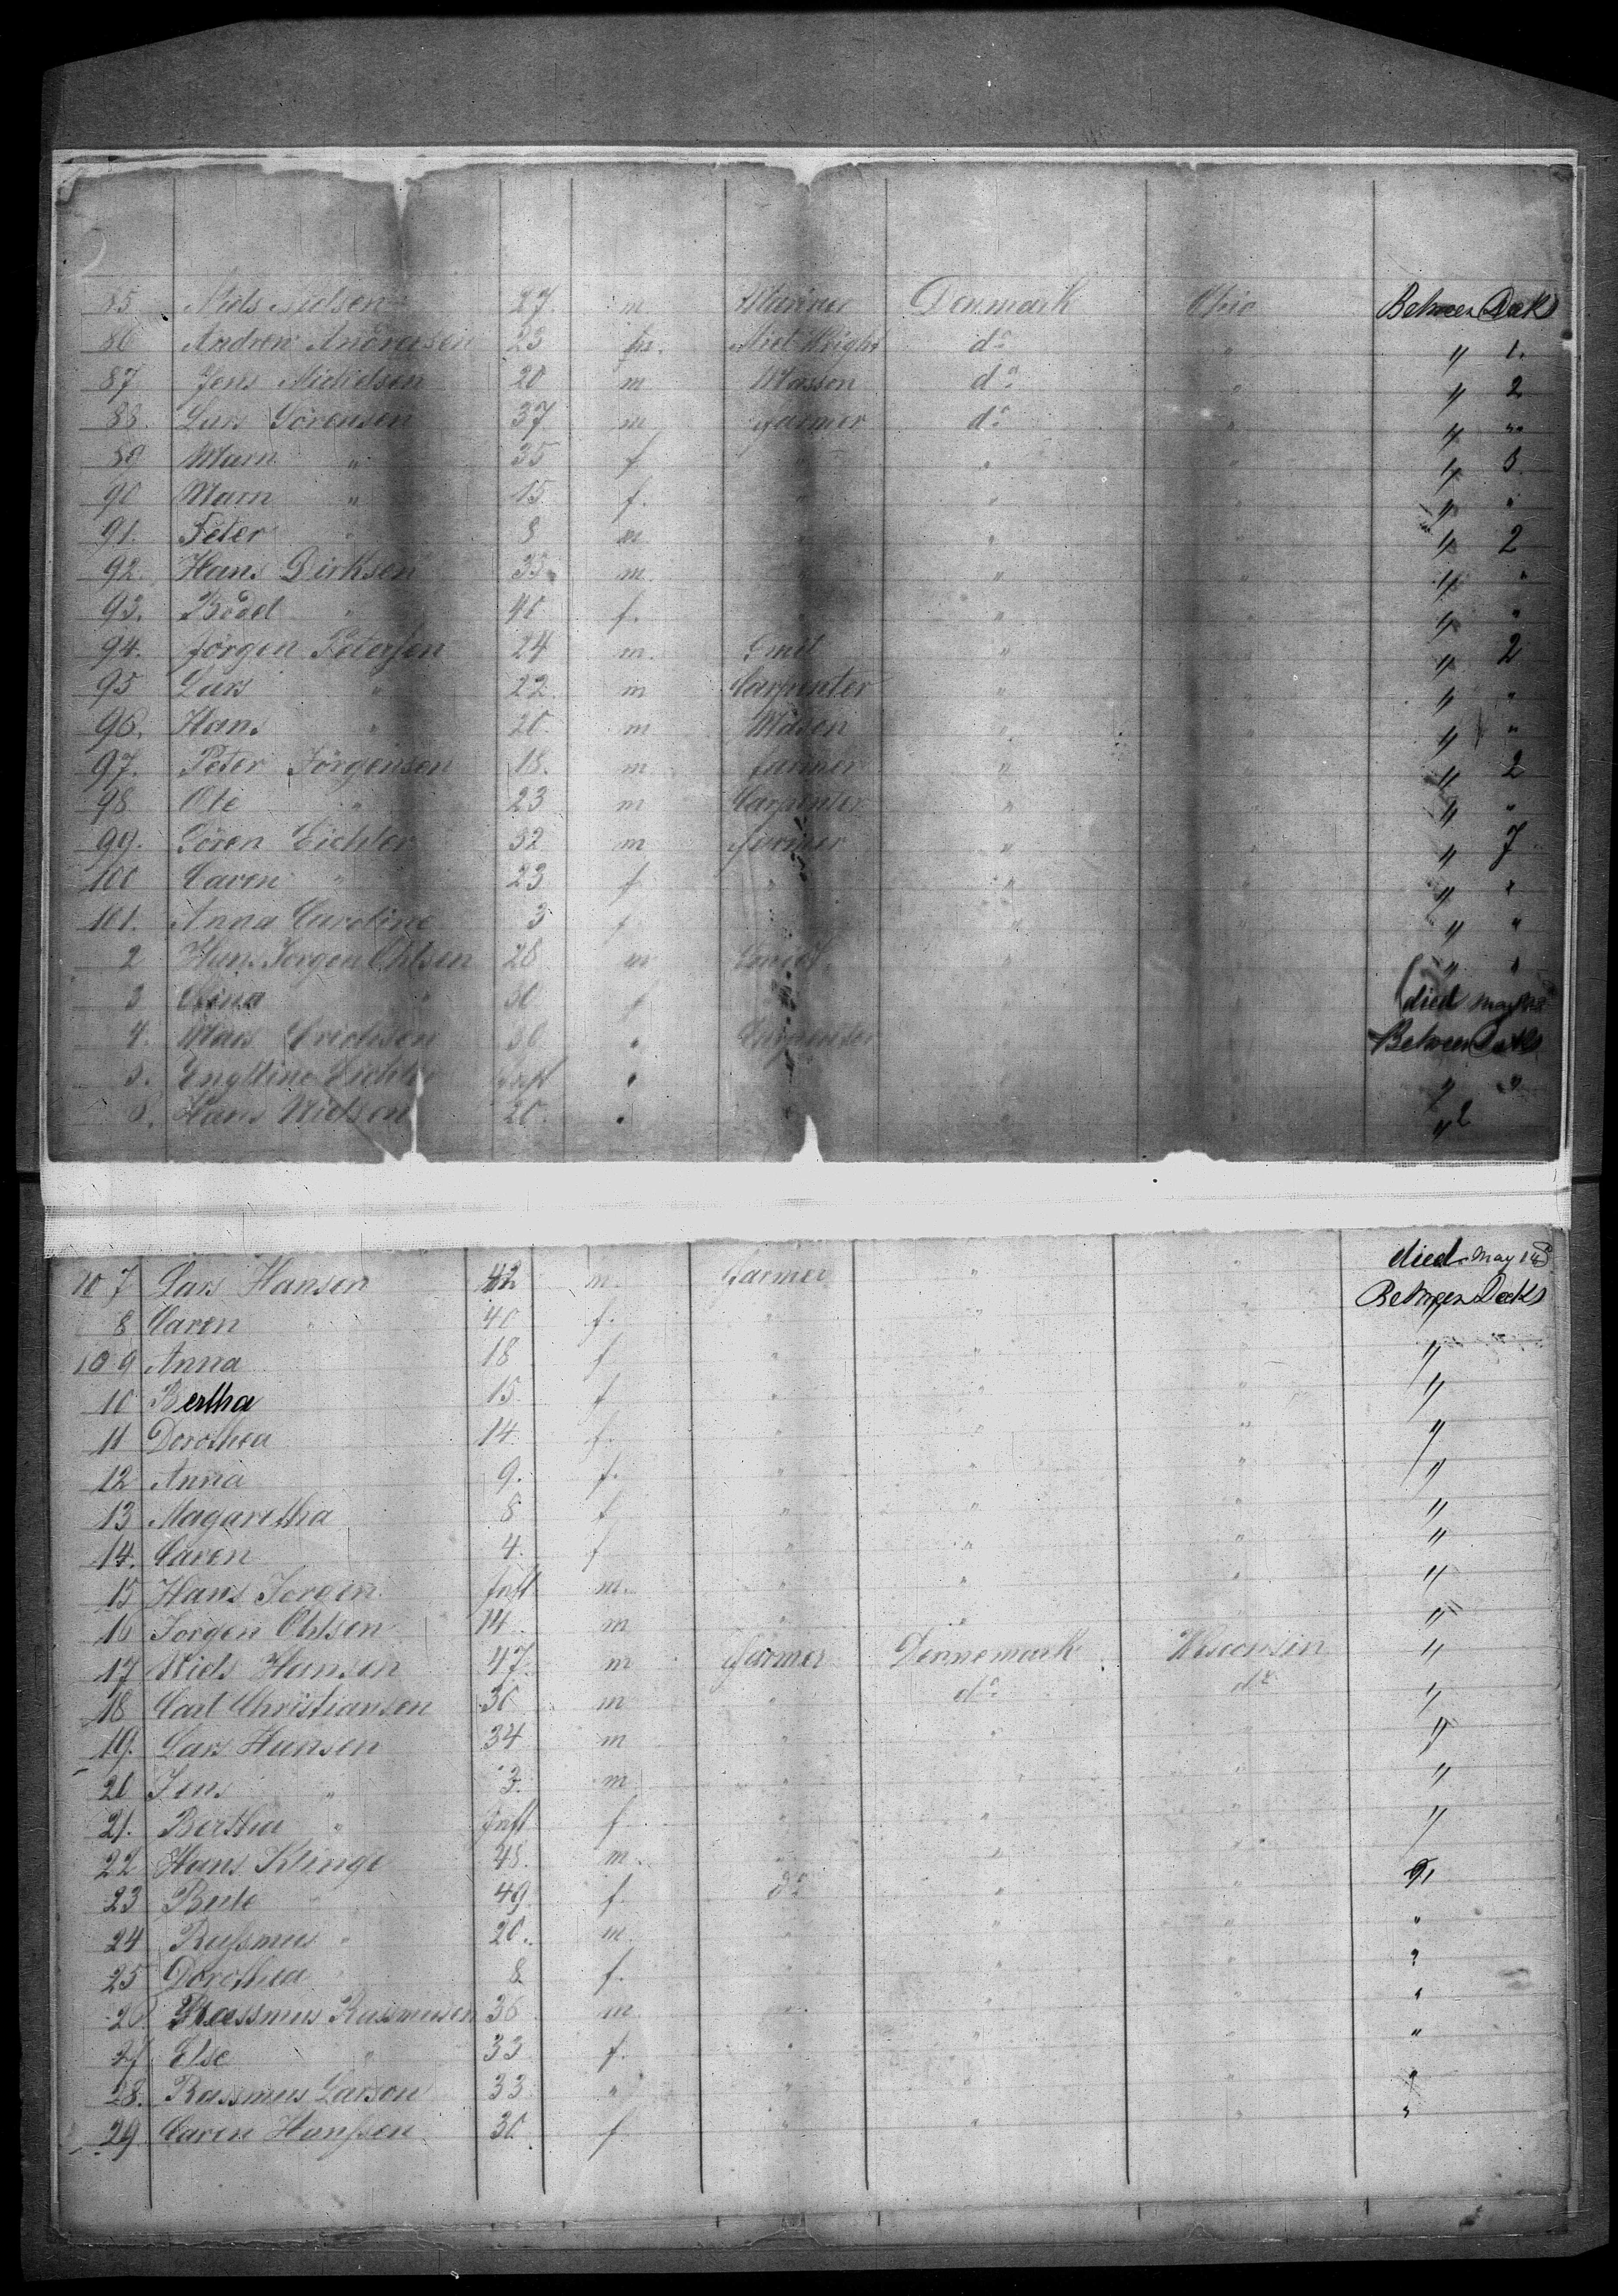 85 Niels Nielsen 27. m Denmark Ohio Between Decks
86 Andrew Andreasen 23 m. d° " " 1.
87 Jens Michelsen 20 m Masson d° " " 2
88. Lars Sörensen 37 m Farmer d° " " "
89 Marn " 35 f " " " " 3
90 Marn " 15 f. " " " " "
91. Peter " 8 m " " " " 2
92. Hans Dirksen 33 m. " " " " "
93. Bodel " 40 f. " " " " "
94. Jörgen Petersen 24 m. Smit " " " 2
95 Lars " 22. m Carpenter " " " "
96. Hans " 20. m Mason " " " "
97. Peter Jörgensen 18. m farmer " " " 2
98 Ole " 23 m Carpenter " " " "
99. Sören Eichler 32 m farmer " " " 7
100 Caren " 23 f " " " " "
101. Anna Caroline 3 f " " " "
2 Hans Jorgen Ohlsen 28 m " " "
3 " 30 f died May
4. Mars 30 " Carpenter Between Decks
5. Engeline Eichler Inft " " "
6. Hans Nielsen 20. " " 2
107 Lars Hansen 42 m. Farmer " " died May 14
8 Caren " 40 f. " " " Between Decks
109 Anna 18 f " " " "
10 Bertha 15. f " " " "
11 Dorothea 14. f. " " " "
12 Anna 9. f. " " " "
13 Magaretha 8 f " " " "
14. Caren 4. f " " " "
15 Hans Jorgen Inft m. " " " "
16 Jorgen Ohlsen 14 m " " " "
17 Niels Hansen 47. m Farmer Dennemark Wisconsin "
18 Carl Christiansen 30 m " d° d° "
19. Lars Hansen 34 m " " " "
20 Jens " 3. m " " " "
21. Bertha " Inft f " " " "
22 Hans Klinge 48. m. " " " "
23 " 49 f. d° " " "
24 Rasmus " 20. m " " " "
25 Dorothea " 8 f. " " " "
26 Rassmus Rasmusen 36 m " " " "
27 Else " 33 f. " " " "
28. Rasmus Larson 33 " " " " "
29 Caren Hanssen 30 f " " " "